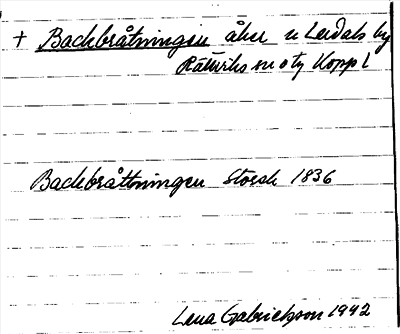 + Backbråtningen åker u Leidals by
Rättviks sn o tg Kopp l
Backbråttningen Storsk 1836
Lena Gabrielsson 1992